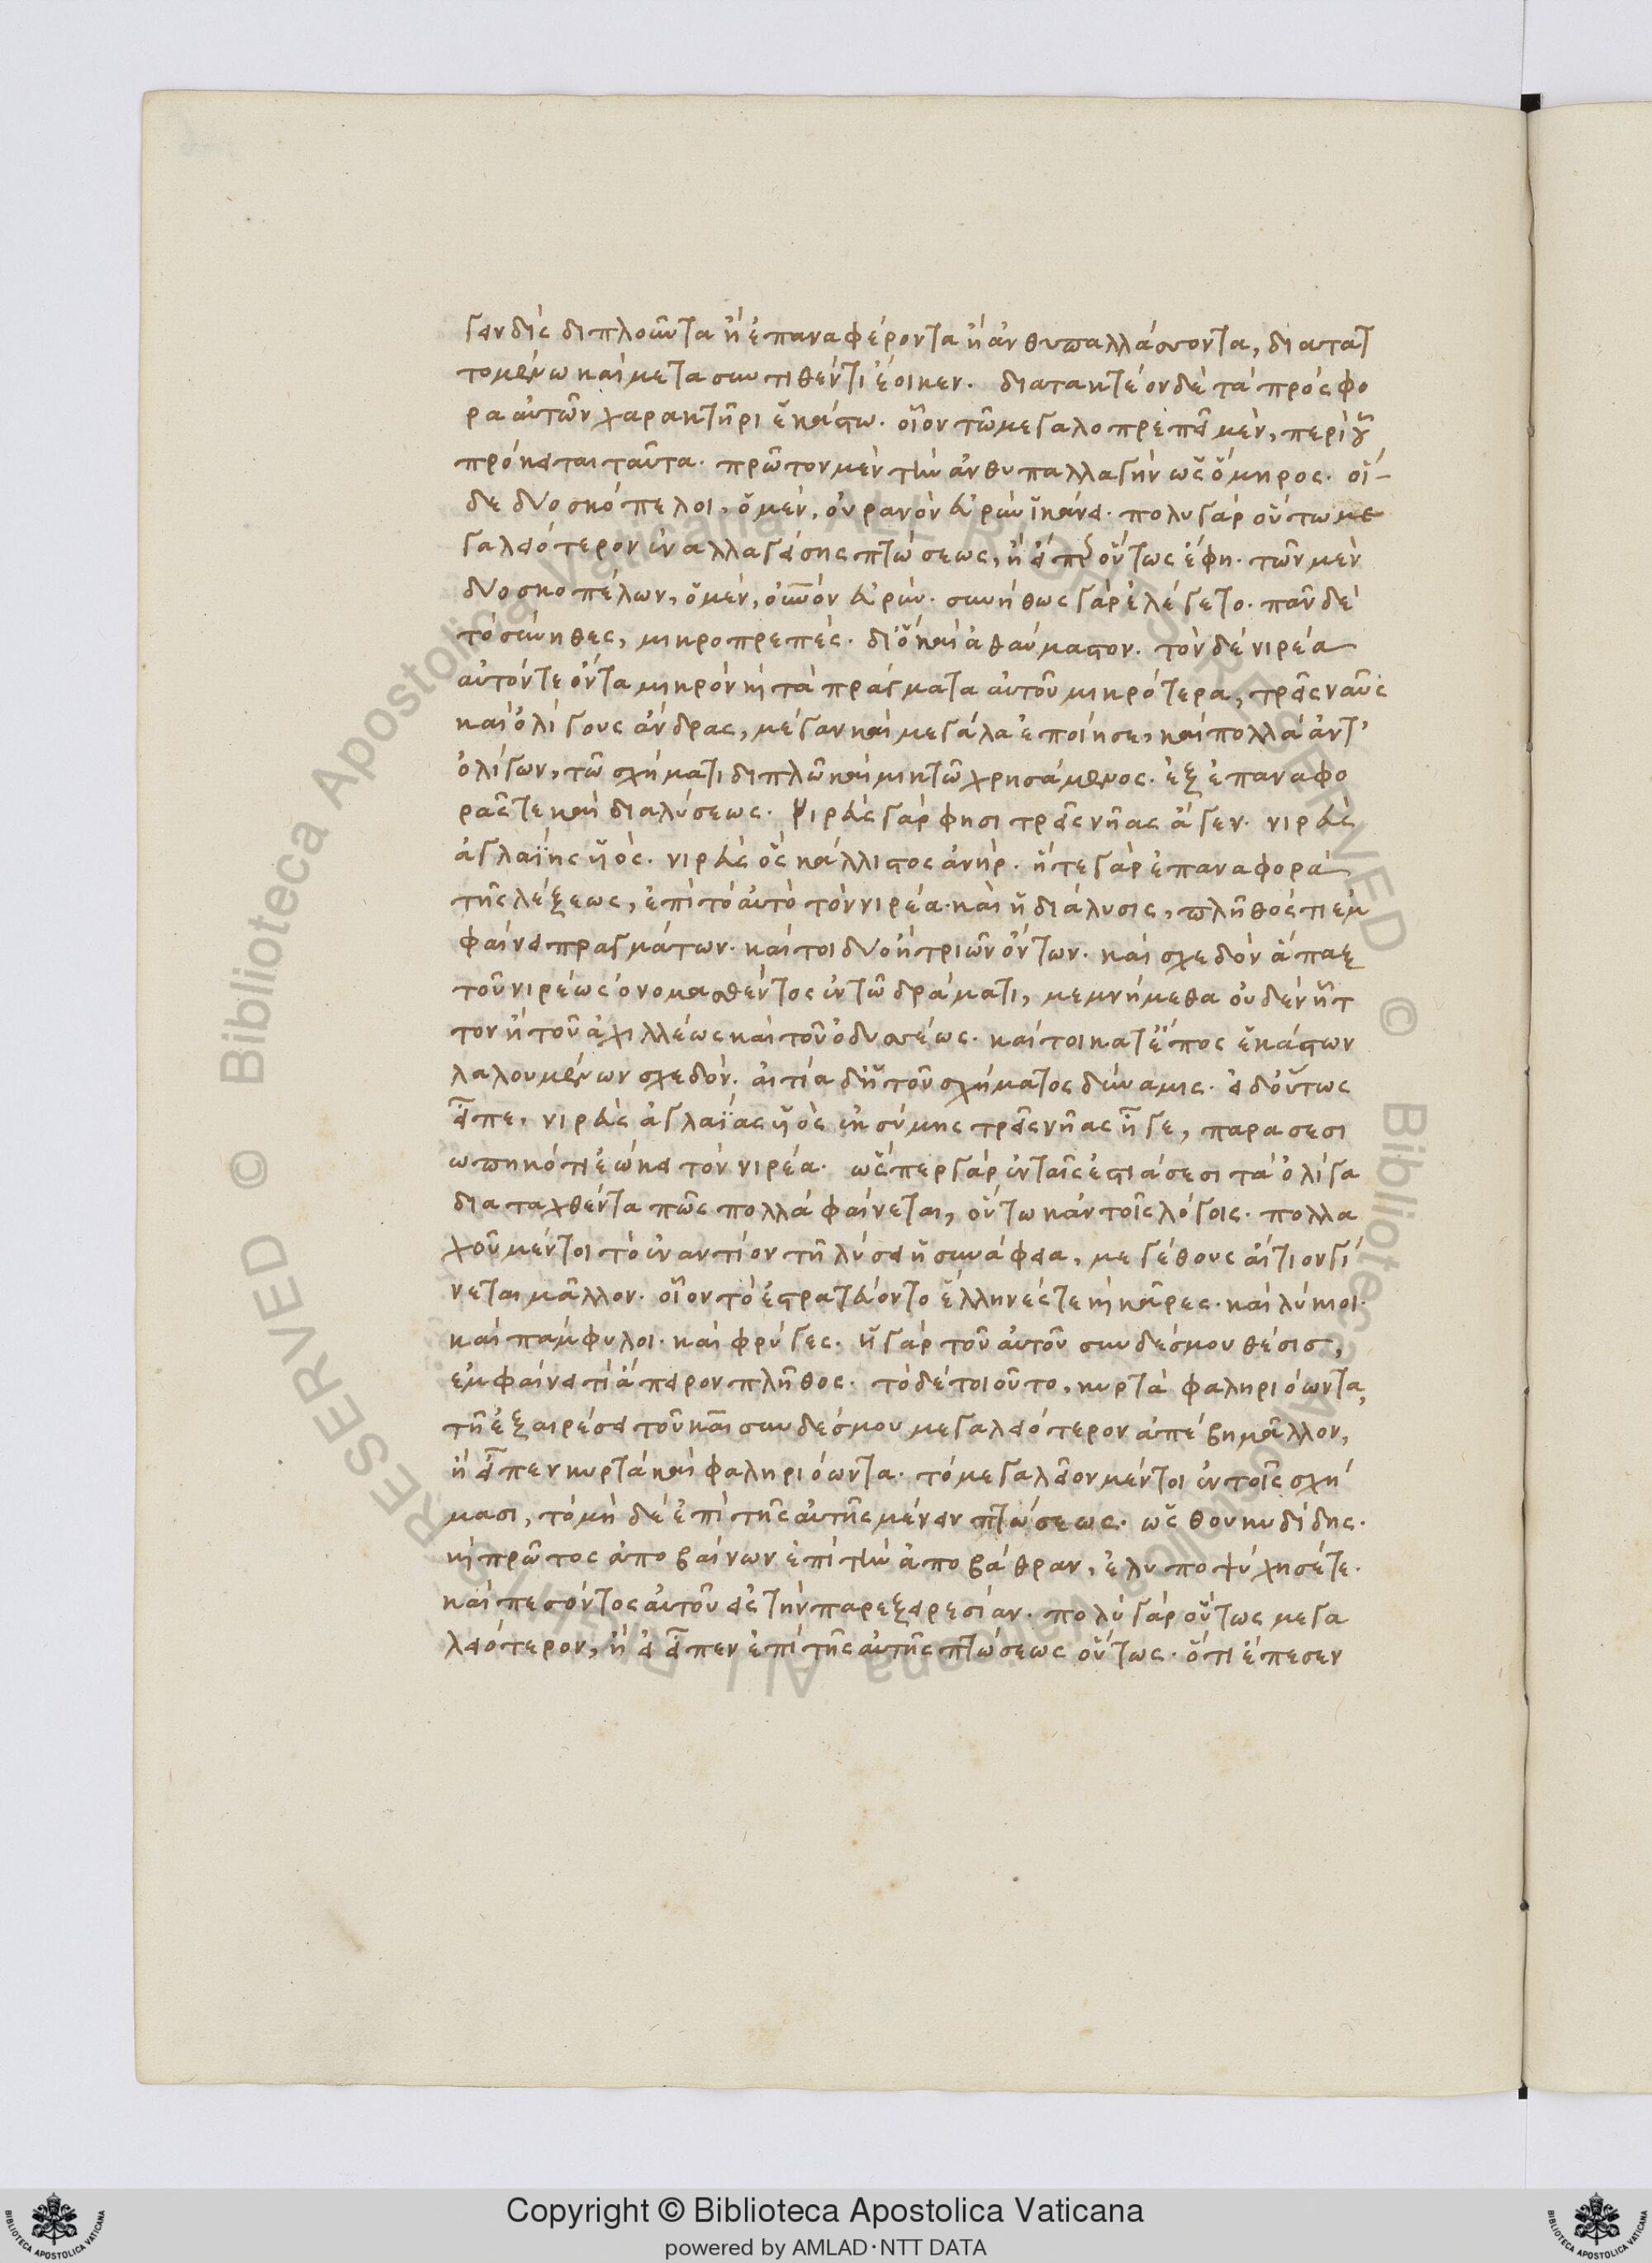 γειν δὶς διπλοῦντα ἢ ἐπαναφέροντα ἢ ἀνθυπαλλάσσοντα, διαταττ
τομένω καὶ μετασυντιθέντι ἔοικεν. διατακτέον δὲ τὰ πρόσφο
ρα αὐτῶν χαρακτῆρι ἑκάστω. οἷον τῶ μεγαλοπρεπεῖ μὲν, περὶ οὗ
πρόκειται ταῦτα. πρῶτον μὲν τὴν ἀνθυπαλλαγὴν ὡς ὅμηρος. οἱ
δε δύο σκόπελοι. ὁ μὲν, οὐρανὸν εὐρὺν ἱκάνει. πολὺ γὰρ οὕτω με
γαλειότερον ἐναλλαγείσης πτώσεως, ἢ εἴπερ οὕτως ἔφη. τῶν μὲν
δύο σκοπέλων, ὁ μὲν, οὐνὸν εὐρὺν. συνήθως γὰρ ἐλέγετο. πᾶν δὲ
τὸ σύνηθες, μικροπρεπές. διὸ καὶ ἀθαύμαστον. τὸν δὲ νιρέα
αὐτόν τε ὄντα μικρὸν κὶ τὰ πράγματα αὐτοῦ μικρότερα, τρεῖς ναῦς
καὶ ὀλίγους ἄνδρας, μέγαν καὶ μεγάλα ἐποίησε, καὶ πολλὰ ἀντ'
ὀλίγων, τῶ σχήματι διπλῶ καὶ μικτῶ χρησάμενος. ἐξ ἐπαναφο
ρᾶς τε καὶ διαλύσεως. νιρεὺς γάρ φησι τρεῖς νῆας ἄγεν. νιρεὺς
ἀγλαΐης ὑός. νιρεὺς ὃς κάλλιστος ἀνήρ. ἥ τε γὰρ ἐπαναφορὰ
τῆς λέξεως, ἐπὶ τὸ αὐτὸ τὸν νιρέα. καὶ ἡ διάλυσις, πλῆθός τι ἐμ
φαίνει πραγμάτων. καίτοι δύο ἢ τριῶν ὄντων. καὶ σχεδὸν ἅπαξ
τοῦ νιρέως ὀνομασθέντος ἐν τῶ δράματι, μεμνήμεθα οὐδὲν ἧτ
τον ἢ τοῦ ἀχιλλέως καὶ τοῦ ὀδυσσέως. καίτοι κατ' ἔπος ἕκαστων
λαλουμένων σχεδόν. αἰτία δ' ἡ τοῦ σχήματος δύναμις. εἰ δ' οὕτως
εἶπε, νιρεὺς ἀγλαΐας ὑὸς ἐκ σύμης τρεῖς νῆας ἦγε, παρασεσι
ωπηκότι ἐώκει τὸν νιρέα. ὥσπερ γὰρ ἐν ταῖς ἑστιάσεσι τὰ ὀλίγα
διαταχθέντα πῶς πολλὰ φαίνεται, οὕτω κἂν τοῖς λόγοις. πολλα
χοῦ μέντοι τὸ ἐναντίον τῆ λύσει ἡ συνάφεια, μεγέθους αἴτιον γί
νεται μᾶλλον. οἷον τὸ ἐστρατεύοντο ἕλληνές τε κὶ κᾶρες. καὶ λύκιοι.
καὶ παμφυλοι. καὶ φρύγες. ἡ γὰρ τοῦ αὐτοῦ συνδέσμου θέσισ,
ἐμφαίνει τι ἄπειρον πλῆθος. τὸ δὲ τοιοῦτο, κυρτὰ φαληριόωντα,
τῆ ἐξαιρέσει τοῦ καὶ συνδέσμου μεγαλειότερον ἀπέβη μᾶλλον,
ἢ εἶπεν κυρτὰ καὶ φαληριόωντα. τὸ μεγαλεῖον μέντοι ἐν τοῖς σχή
μασι, τὸ μὴ δὲ ἐπὶ τῆς αὐτῆς μένειν πτώσεως. ὡς θουκυδίδης.
κὶ πρῶτος ἀποβαίνων ἐπὶ τὴν ἀποβάθραν, ἐλυποψύχησέ τε.
καὶ πεσόντος αὐτοῦ εἰς τὴν παρεξειρεσίαν. πολὺ γὰρ οὕτως μεγα
λειότερον, ἢ εἰ εἶπεν ἐπὶ τῆς αὐτῆς πτώσεως οὕτως. ὅτι ἔπεσεν
Copyright © Biblioteca Apostolica Vaticana
powered by AMLAD·NTT DATA